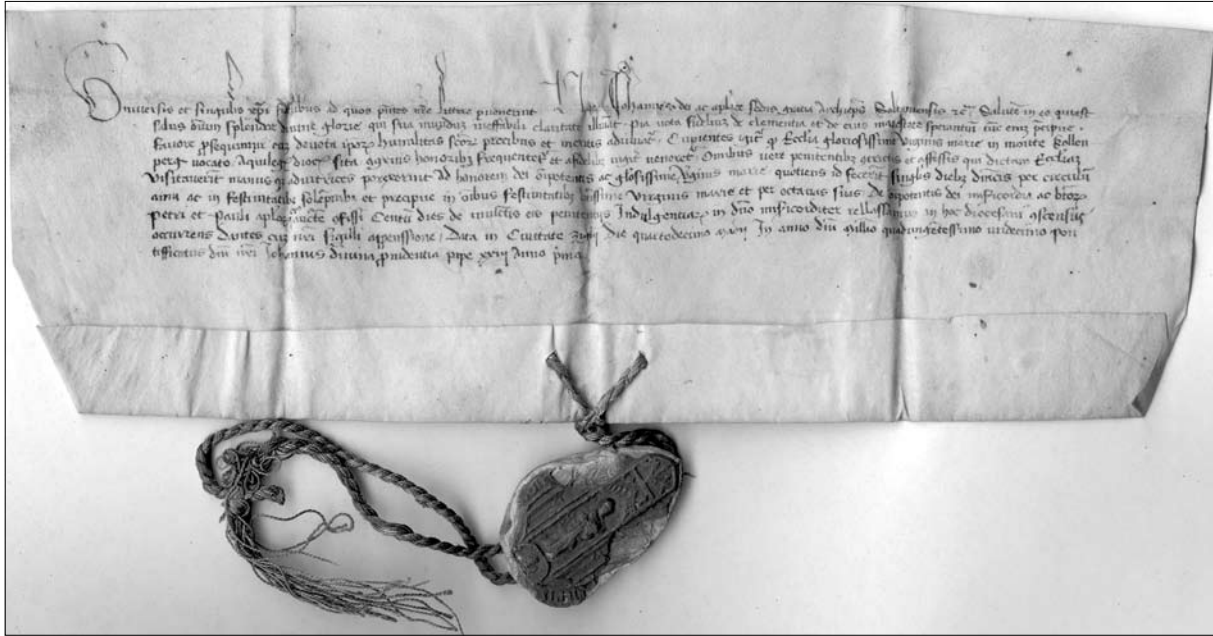 Universis et singulis xpi fidelibus ad quos pntes nre littere pervenerint Nos Johannes dei ac aplice sedis gratia Archieps Soltaniensis Salute in eo qui est
salus oim splendore divine glorie qui sua mundum ineffabili claritate illuiat pia vota fidelium de clementia et de eius maiestate sperantium tunc enim precipue
favore prosequimur cum devota ipor humilitas scor precibus et meritis adiuvatur Cupientes igitur ecclia gloriosissime virginis marie in monte
perg vocato Aquilegi dioc sita congruis honoribus frequentetur et a fidelibus iugiter veneretur Omnibus vere penitentibus et confessis qui dictam Ecclia
visitaverint manus adiutrices porrexerint ad honorem dei oipotentis ac gloriosissime virginis marie quotiens id fecerit singulis diebus dominicis per circulum
anni ac in festivitatibus solempnibus et precipue in oibus festivitatibus virginis marie et per octavas De oipotentis dei misericordia ac btor
petri et pauli aplor confissi Centum dies de iniunctis eis penitentiis Indulgentiam in dno misericorditer relaxamus in hac diocesi
occurrens Dantes cum nri sigilli appenssione Data in Civitate die quartodecimo In anno dni millio quadringentessimo undecimo pon
tifficatus dni nri Johannis divina providentia pape xxiii Anno primo